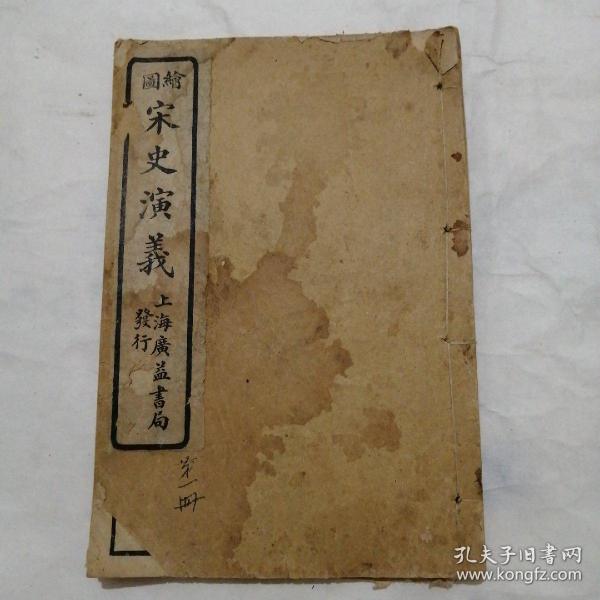 繪圖
宋史演義
上海廣益書局
發行
第一冊
孔夫子旧书网
www.kongfz.com